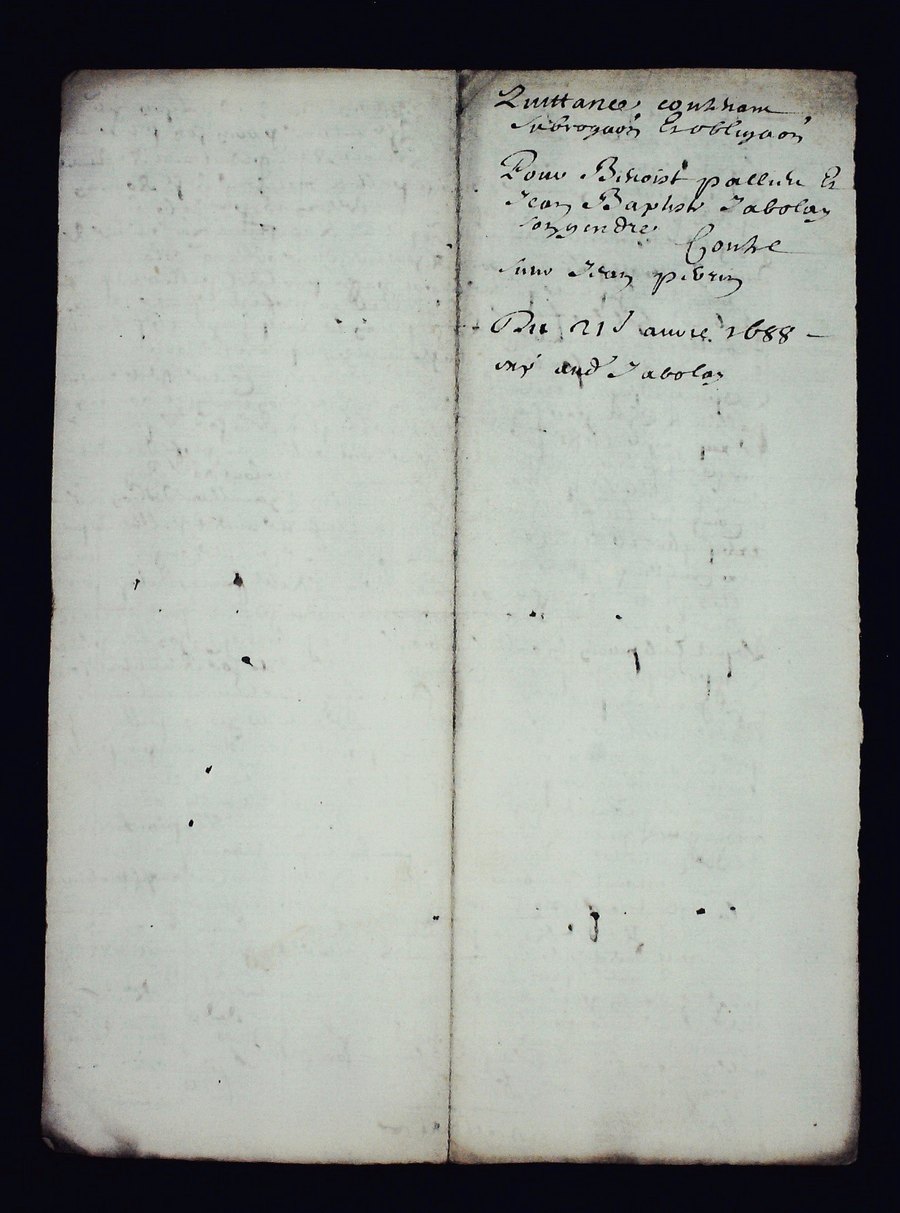 Quittance contenant
subrogaõn Et obligaõn
Pour Benoist pallier Et
Jean Baptiste Jabolay
son gendre
Contre
sieur Jean pivrin
Du 21 1688
Jabolay